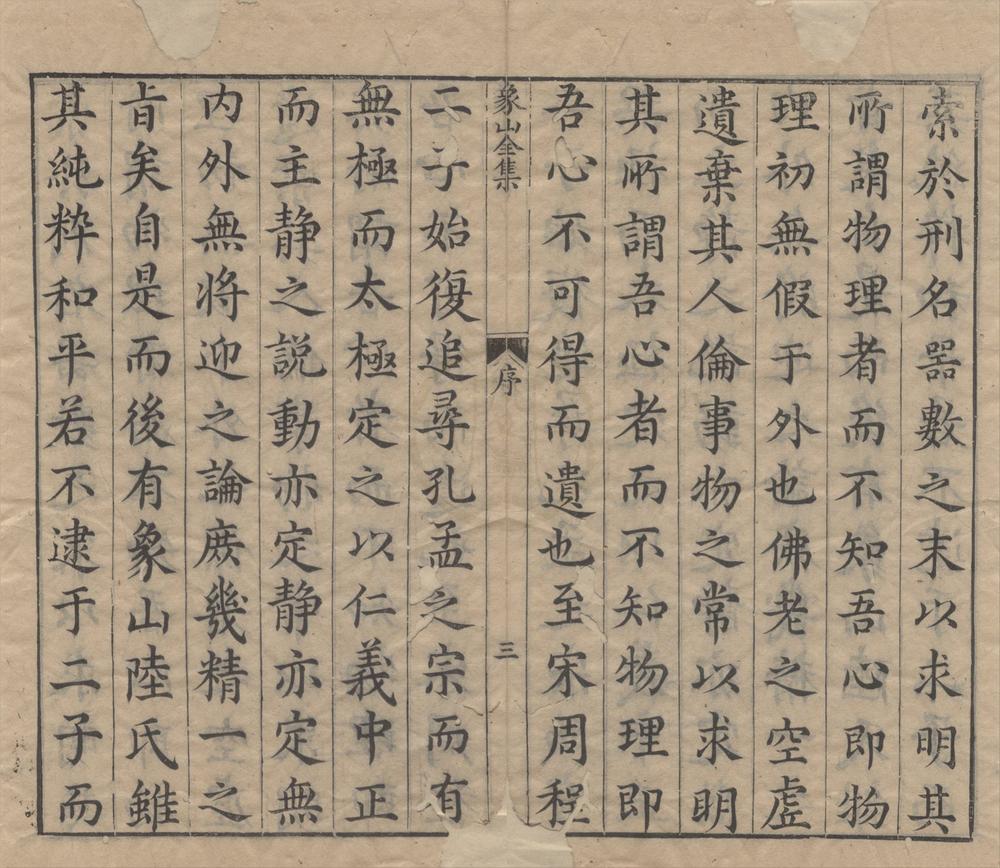 索於刑名器數之末以求明其
所謂物理者而不知吾心即物
理初無假于外也佛老之空虛
遺棄其人倫事物之常以求明
其所謂吾心者而不知物理即
吾心不可得而遺也至宋周程
象山全集
序
三
二子始復追尋孔孟之宗而有
無極而太極定之以仁義中正
而主静之説動亦定静亦定無
内外無将迎之論庶幾精一之
旨矣自是而後有象山陸氏雖
其純粹和平若不逮于二子而